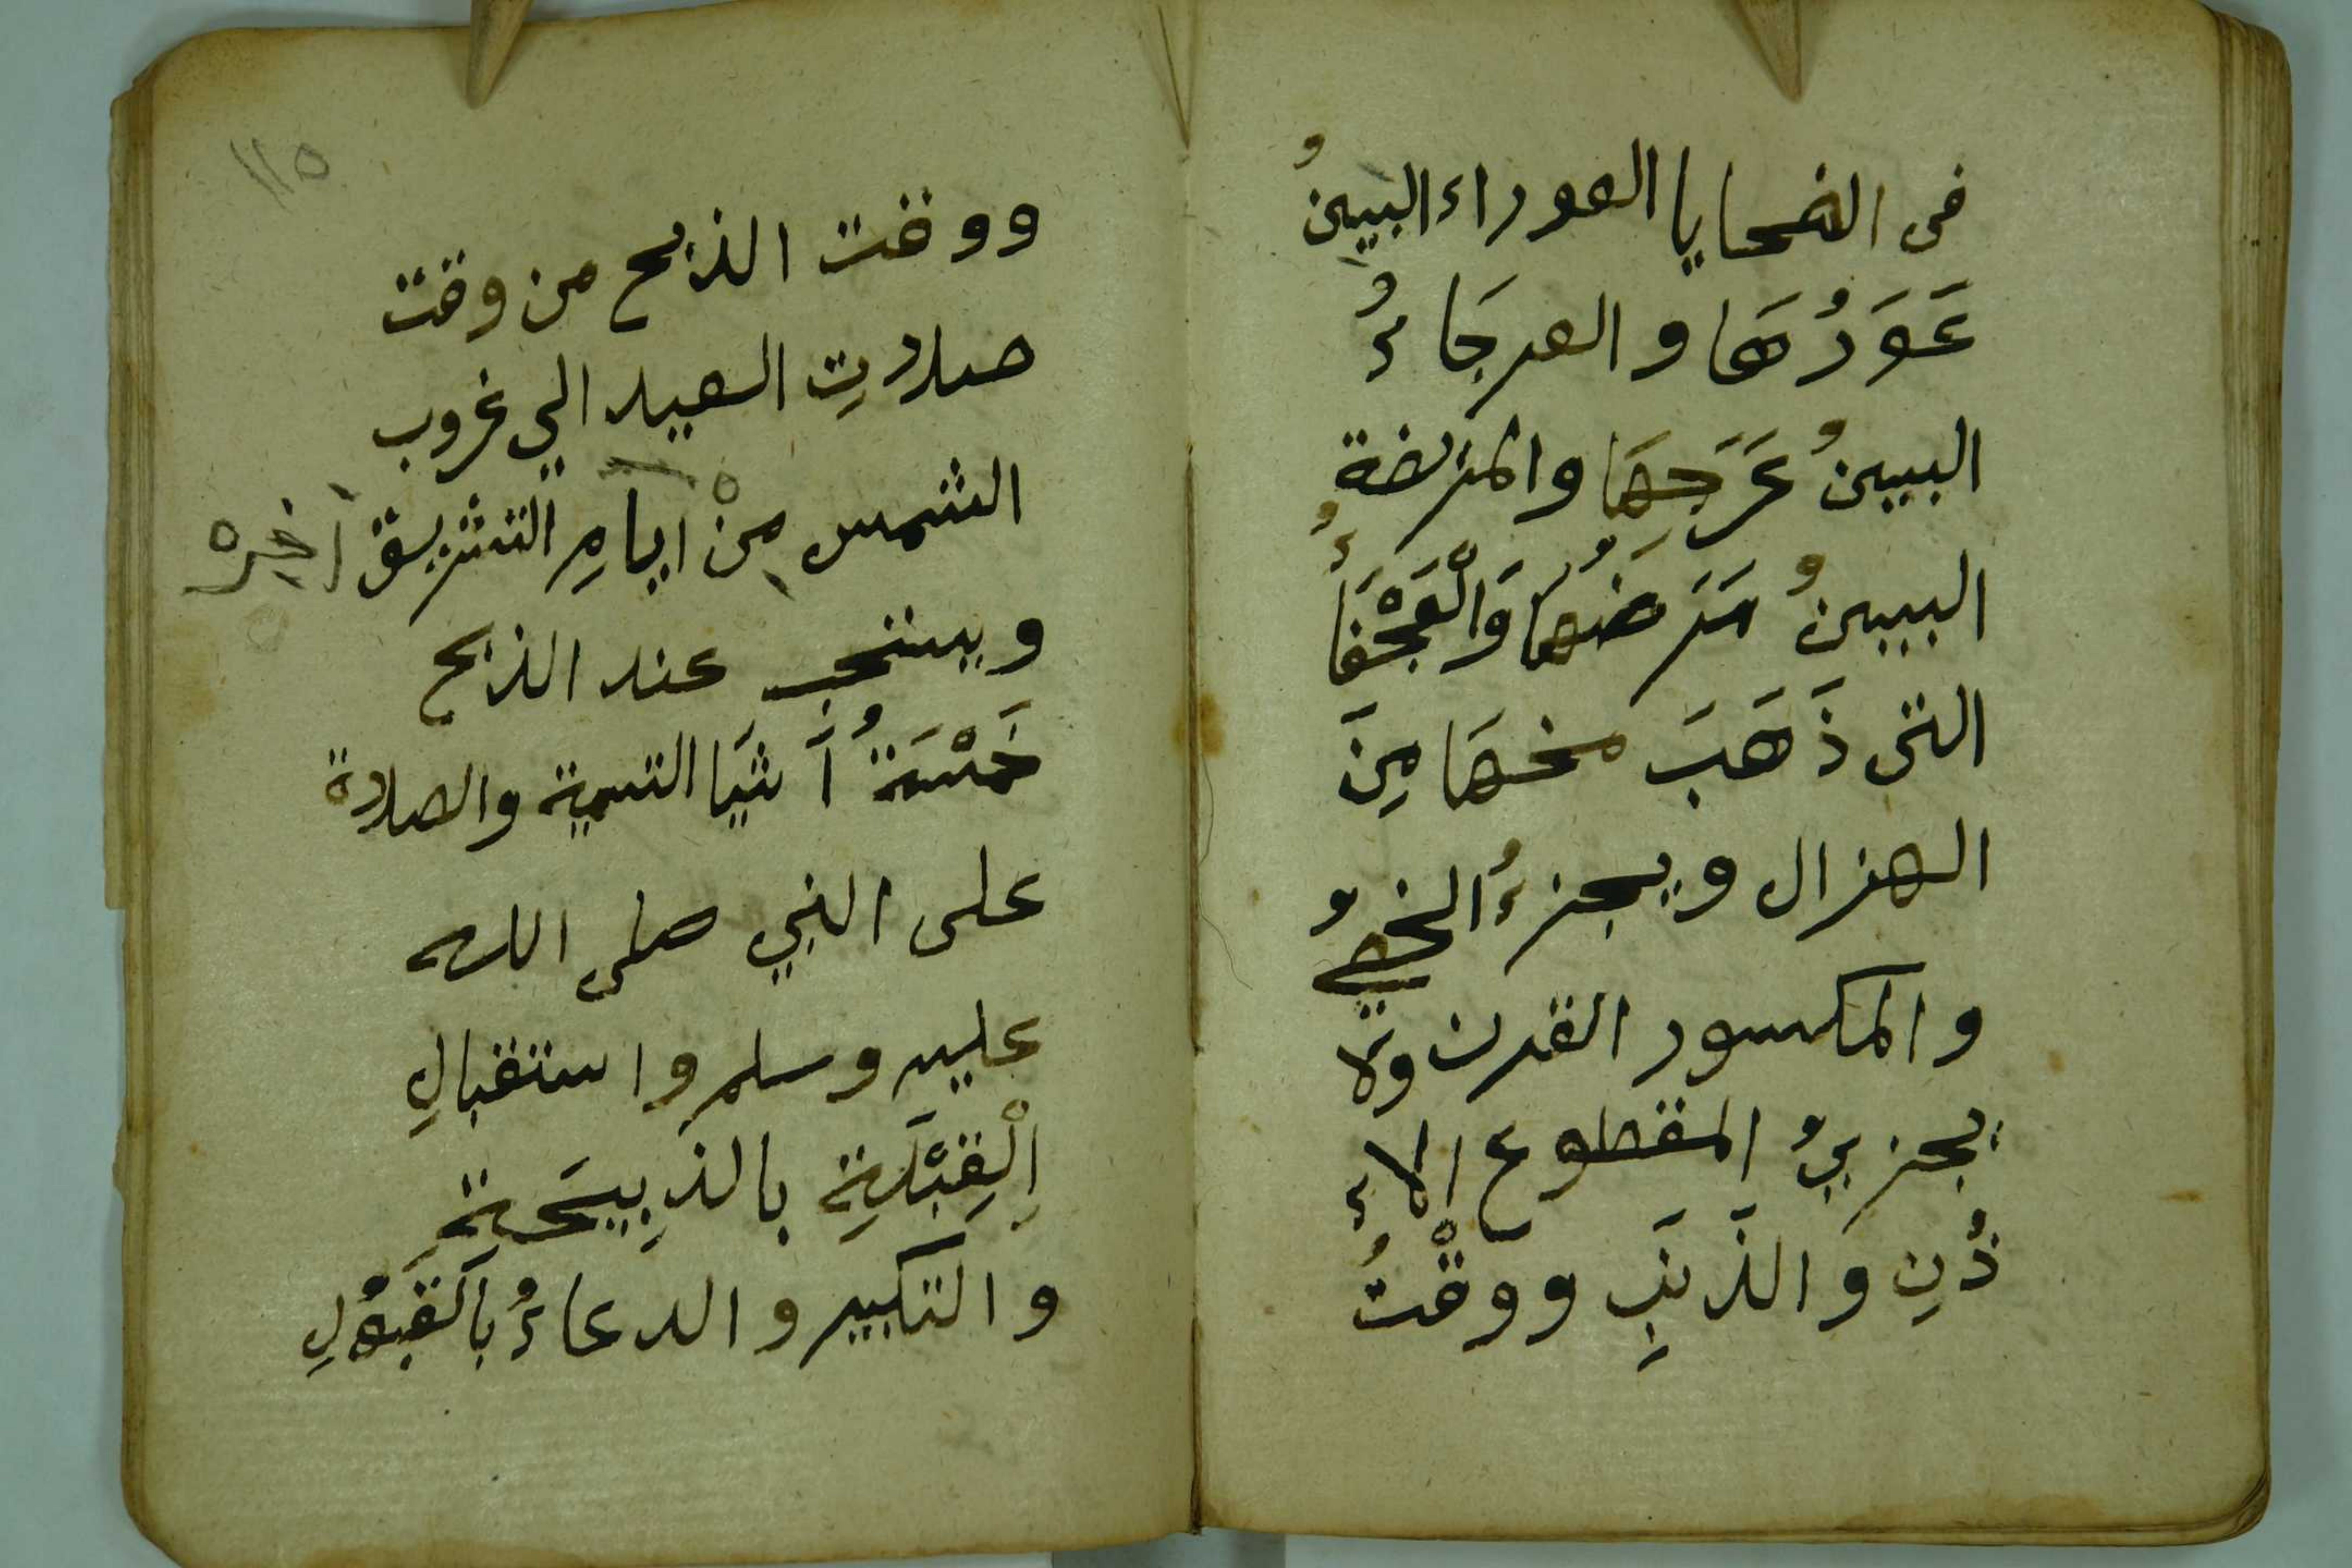 فى الضحايا العوراء البينُ
عَوَرُهَا والعرجَاءُ
البينُ عَرَجِهَا والمريضة
البينُ مَرَضُهَا وَالْعَجْفَاءُ
التى ذَهَبَ مخهَا مِنَ
الهزال ويجزءُ الخصيُّ
والمكسور القرن ولا
يجزيُ المقطوع الاء
ذُنِ والذَنَبِ ووقْتُ
١١٥
ووقت الذبح من وقت
صلاتِ العيد الي غروب
الشمس مِنْ ايامِ التشريق اخره
ويستحب عند الذبح
خَمْسَةُ اَشيَا التسمية والصلاة
على النبي صلى الله
عليه وسلم واستقبالِ
الْقِبْلَةِ بالذبِيحَةِ
والتكبير والدعاءُ بالَقبُولِ